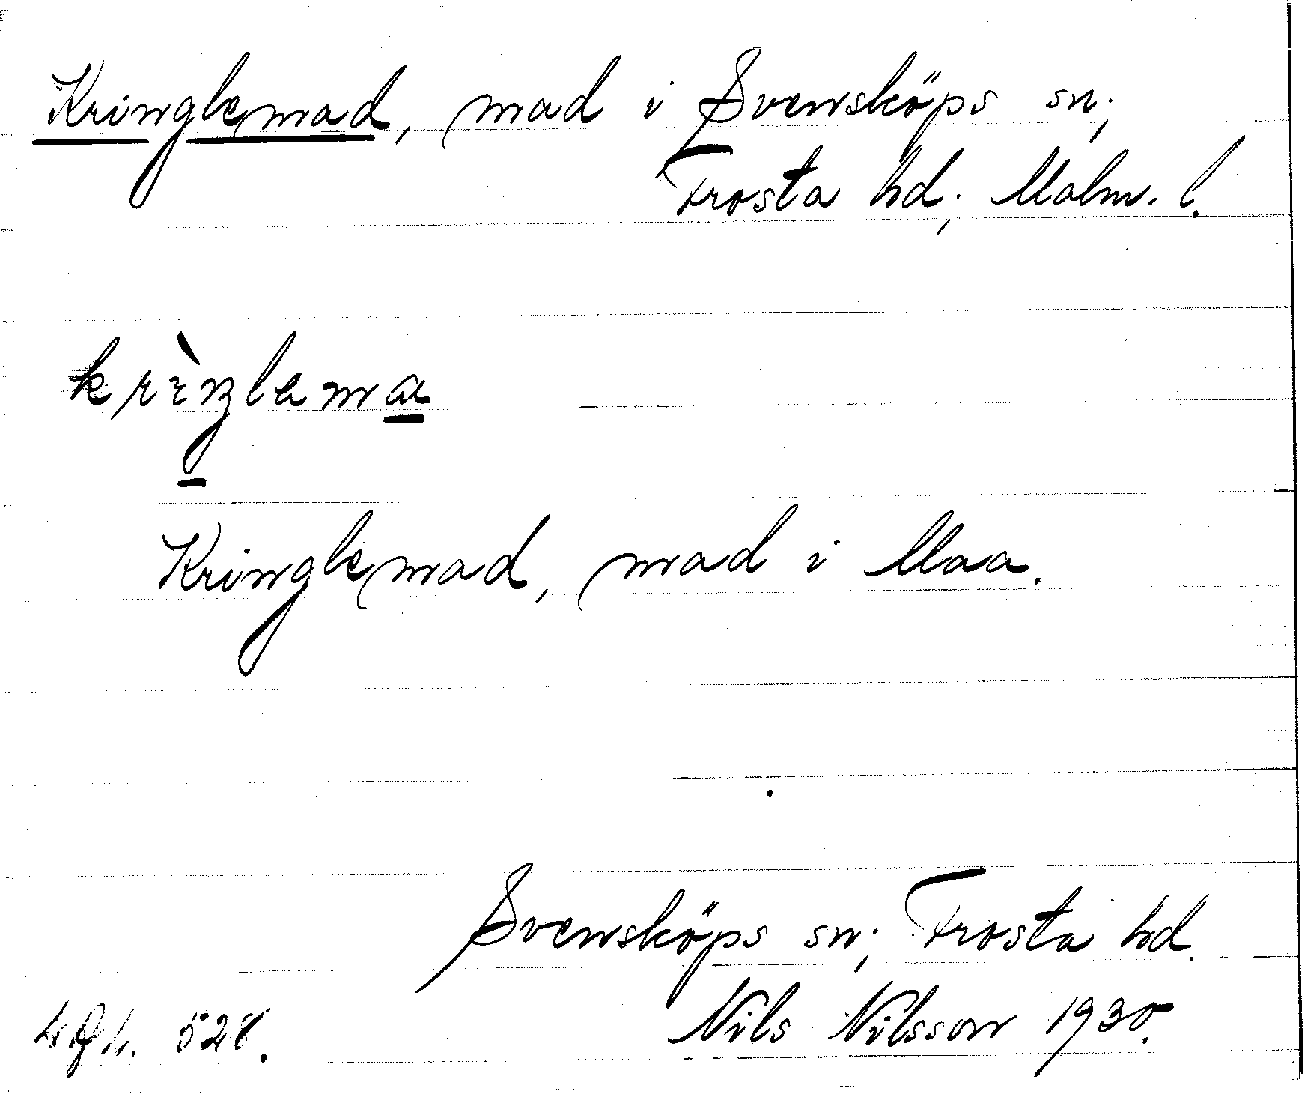 Kringlemad, mad i Svensköps sn;
Frosta hd; Malm. l.
krìŋlama
Kringlemad, mad i Maa.
Svensköps sn; Frosta hd.
Nils Nilsson 1930.
528.